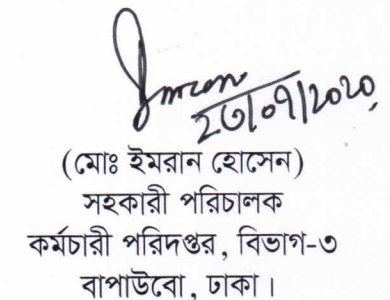 Imran
২৩/০৭/২০২০
(মোঃ ইমরান হোসেন)
সহকারী পরিচালক
কর্মচারী পরিদপ্তর, বিভাগ-৩
বাপাউবো, ঢাকা।